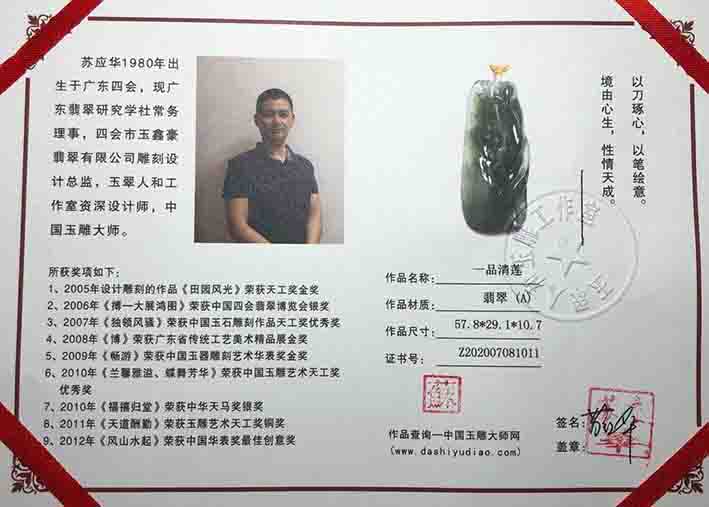 苏应华1980年出
生于广东四会，现广
东翡翠研究学社常务
理事，四会市玉鑫豪
翡翠有限公司雕刻设
计总监，玉翠人和工
作室资深设计师，中
国玉雕大师。
以刀琢心，以笔绘意。
境由心生，性情天成。
所获奖项如下：
1、2005年设计雕刻的作品《田园风光》荣获天工奖金奖
2、2006年《博一大展鸿图》荣获中国四会翡翠博览会银奖
3、2007年《独领风骚》荣获中国玉石雕刻作品天工奖优秀奖
4、2008年《博》荣获广东省传统工艺美术精品展金奖
5、2009年《畅游》荣获中国玉器雕刻艺术华表奖金奖
6、2010年《兰馨雅溢、蝶舞芳华》荣获中国玉雕艺术天工奖
优秀奖
7、2010年《福禧归堂》荣获中华天马奖银奖
8、2011年《天道酬勤》荣获玉雕艺术天工奖铜奖
9、2012年《风山水起》荣获中国华表奖最佳创意奖
作品名称：一品清莲
作品材质：翡翠（A）
作品尺寸：57.8*29.1*10.7
证书号：Z202007081011
作品查询—中国玉雕大师网
(www.dashiyudiao.com)
签名：
盖章：